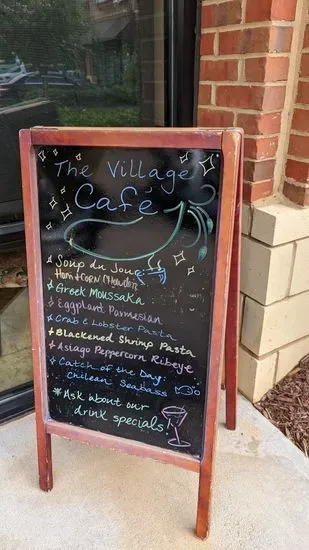 The Village
Café
Soup du Jour
Ham & Corn Chowder
Greek Moussaka
Eggplant Parmesian
Crab & Lobster Pasta
Blackened Shrimp Pasta
Asiago Peppercorn Ribeye
Catch of the Day:
Chilean Seabass
*Ask about our
drink specials!